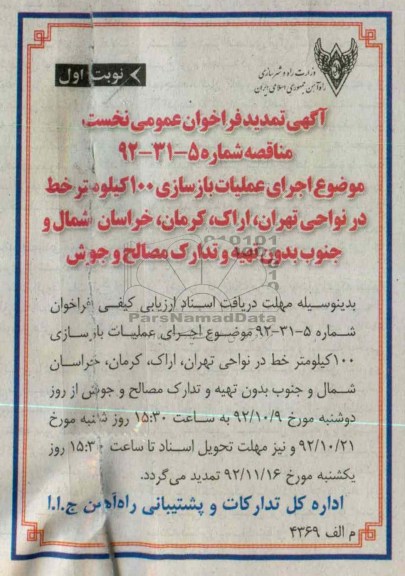 وزارت راه و شهرسازی
راه‌آهن جمهوری اسلامی ایران
نوبت اول
آگهی تمدید فراخوان عمومی نخست
مناقصه شماره ۵-۳۱-۹۲
موضوع اجرای عملیات بازسازی ۱۰۰ کیلومتر خط
در نواحی تهران، اراک، کرمان، خراسان شمال و
جنوب بدون تهیه و تدارک مصالح و جوش
بدینوسیله مهلت دریافت اسناد ارزیابی کیفی فراخوان
شماره ۵-۳۱-۹۲ موضوع اجرای عملیات بازسازی
۱۰۰ کیلومتر خط در نواحی تهران، اراک، کرمان، خراسان
شمال و جنوب بدون تهیه و تدارک مصالح و جوش از روز
دوشنبه مورخ ۹۲/۱۰/۹ به ساعت ۱۵:۳۰ روز شنبه مورخ
۹۲/۱۰/۲۱ و نیز مهلت تحویل اسناد تا ساعت ۱۵:۳۰ روز
یکشنبه مورخ ۹۲/۱۱/۱۶ تمدید می‌گردد.
اداره کل تدارکات و پشتیبانی راه‌آهن ج.ا.ا
م الف ۴۳۶۹
ParsNamadData